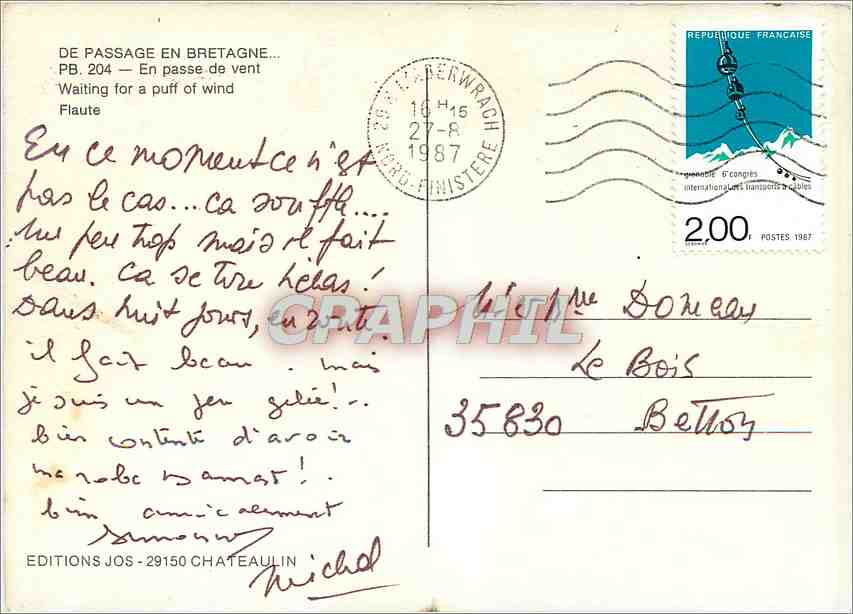 DE PASSAGE EN BRETAGNE...
PB. 204 — En passe de vent
Waiting for a puff of wind
Flaute
En ce moment ce n'est
pas le cas... ca souffle....
un peu trop mais il fait
beau. Ca se tire hélas!
Dans huit jours, en route.
il fait beau. mais
je suis un peu gelée!..
bien contente d'avoir
ma robe Damart!.
bien amicalement
Michel
EDITIONS JOS - 29150 CHATEAULIN
29 L'ABERWRACH
16 H 15
27-8
1987
NORD-FINISTERE
REPUBLIQUE FRANCAISE
grenoble 6e congrès
international des transports à câbles
2,00F POSTES 1987
Le Bois
35830 Betton
CPARPHIL